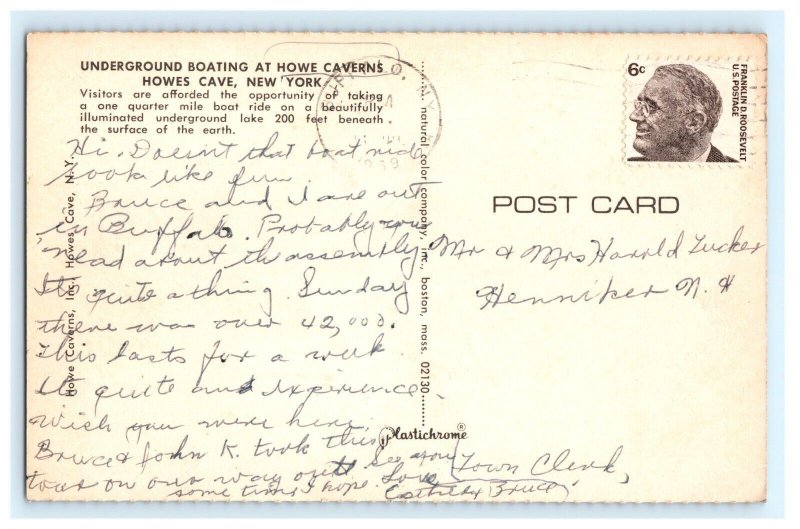 UNDERGROUND BOATING AT HOWE CAVERNS
HOWES CAVE, NEW YORK
Visitors are afforded the opportunity of taking
a one quarter mile boat ride on a beautifully
illuminated underground lake 200 feet beneath
the surface of the earth.
Hi. Doesn't that boat ride
look like fun.
Bruce and I are out
in Buffalo. Probably you
read about th assembly.
It quite a thing. Sunday
there was over 42,000.
This lasts for a week
It quite and experience.
Wish you were here.
Bruce & John K. took this
tour on our way out. See you
some time I hope. Love
Bruce
Howe Caverns, Inc., Howes Cave, N.Y.
natural color company, inc., boston, mass. 02130
Plastichrome®
6c
FRANKLIN D. ROOSEVELT
U.S. POSTAGE
POST CARD
Mr & Mrs Harold Tucker
Henniker N. H
Town Clerk,